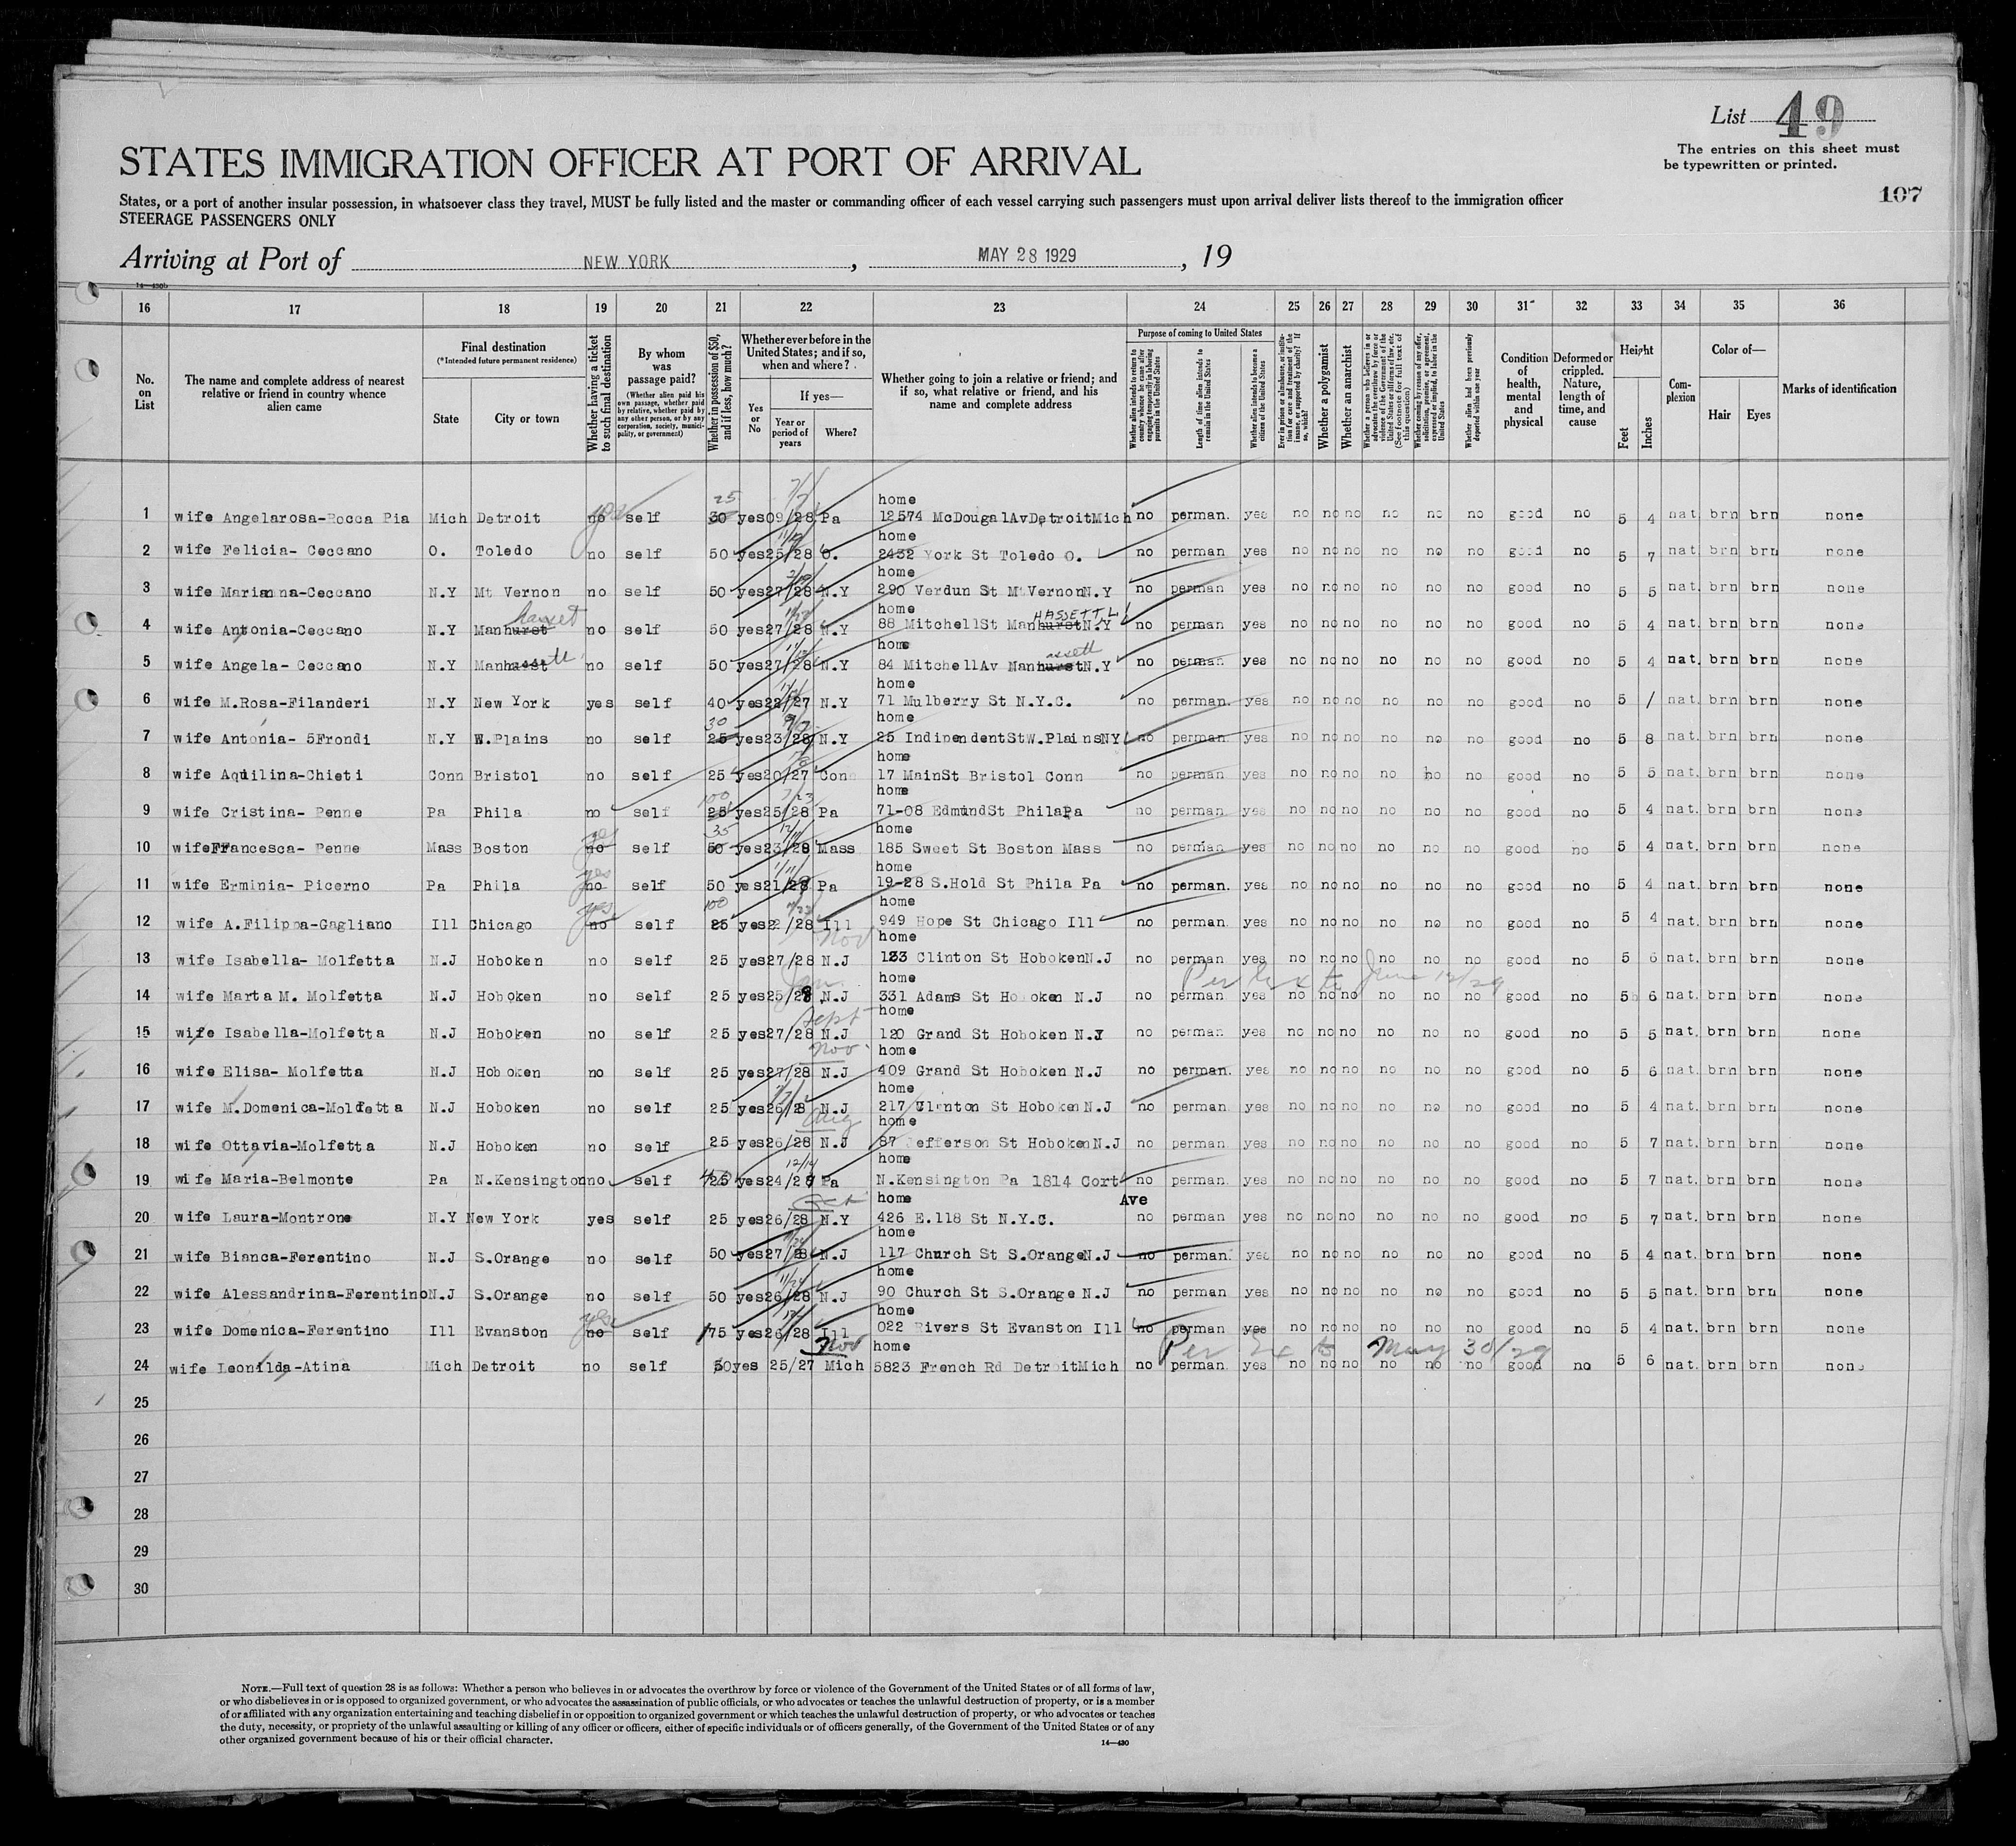 List 49
The entries on this sheet must
be typewritten or printed.
107
STATES IMMIGRATION OFFICER AT PORT OF ARRIVAL
States, or a port of another insular possession, in whatsoever class they travel, MUST be fully listed and the master or commanding officer of each vessel carrying such passengers must upon arrival deliver lists thereof to the immigration officer
STEERAGE PASSENGERS ONLY
Arriving at Port of NEW YORK, MAY 28 1929, 19
14—430b
16 17 18 19 20 21 22 23 24 25 26 27 28 29 30 31 32 33 34 35 36
No. on List
The name and complete address of nearest relative or friend in country whence alien came
Final destination (*Intended future permanent residence)
State
City or town
Whether having a ticket to such final destination
By whom was passage paid? (Whether alien paid his own passage, whether paid by relative, whether paid by any other person, or by any corporation, society, municipality, or government)
Whether in possession of $50, and if less, how much?
Whether ever before in the United States; and if so, when and where?
Yes or No
If yes—
Year or period of years
Where?
Whether going to join a relative or friend; and if so, what relative or friend, and his name and complete address
Purpose of coming to United States
Whether alien intends to return to country whence he came after engaging temporarily in laboring pursuits in the United States
Length of time alien intends to remain in the United States
Whether alien intends to become a citizen of the United States
Ever in prison or almshouse, or institution for care and treatment of the insane, or supported by charity? If so, which?
Whether a polygamist
Whether an anarchist
Whether a person who believes in or advocates the overthrow by force or violence of the Government of the United States or all forms of law, etc. (See footnote for full text of this question)
Whether coming by reason of any offer, solicitation, promise, or agreement, expressed or implied, to labor in the United States
Whether alien had been previously deported within one year
Condition of health, mental and physical
Deformed or crippled. Nature, length of time, and cause
Height
Feet
Inches
Complexion
Color of—
Hair
Eyes
Marks of identification
25
home
1 wife Angelarosa-Rocca Pia Mich Detroit no self 30 yes 09/28 Pa 12574 McDougalAvDetroitMich no perman. yes no no no no no no good no 5 4 nat. brn brn none
home
2 wife Felicia- Ceccano O. Toledo no self 50 yes 25/28 O. 2432 York St Toledo O. no perman yes no no no no no no good no 5 7 nat. brn brn none
home
3 wife Marianna-Ceccano N.Y Mt Vernon no self 50 yes 27/28 N.Y 290 Verdun St Mt VernonN.Y no perman yes no no no no no no good no 5 5 nat. brn brn none
home HASSETT
4 wife Antonia-Ceccano N.Y Manhurst no self 50 yes 27/28 N.Y 88 MitchellSt ManhurstN.Y no perman yes no no no no no no good no 5 4 nat. brn brn none
home assett
5 wife Angela- Ceccano N.Y Manhurst no self 50 yes 27/28 N.Y 84 MitchellAv ManhurstN.Y no perman yes no no no no no no good no 5 4 nat. brn brn none
home
6 wife M.Rosa-Filanderi N.Y New York yes self 40 yes 22/27 N.Y 71 Mulberry St N.Y.C. no perman. yes no no no no no no good no 5 / nat. brn brn none
30 home
7 wife Antonia- 5Frondi N.Y W.Plains no self 25 yes 23/28 N.Y 25 IndipendentStW.PlainsNY no perman yes no no no no no no good no 5 8 nat. brn brn none
home
8 wife Aquilina-Chieti Conn Bristol no self 25 yes 20/27 Conn 17 MainSt Bristol Conn no perman yes no no no no no no good no 5 5 nat. brn brn none
100 7/23 home
9 wife Cristina- Penne Pa Phila no self 25 yes 25/28 Pa 71-08 EdmundSt PhilaPa no perman yes no no no no no no good no 5 4 nat. brn brn none
yes 35 home
10 wifeFFancesca- Penne Mass Boston no self 50 yes 23/28 Mass 185 Sweet St Boston Mass no perman yes no no no no no no good no 5 4 nat. brn brn none
yes home
11 wife Erminia- Picerno Pa Phila no self 50 yes 21/28 Pa 19-28 S.Hold St Phila Pa no perman. yes no no no no no no good no 5 4 nat. brn brn none
yes 100 home
12 wife A.Filippa-Gagliano Ill Chicago no self 25 yes 22/28 Ill 949 Hope St Chicago Ill no perman. yes no no no no no no good no 5 4 nat. brn brn none
Nov home
13 wife Isabella- Molfetta N.J Hoboken no self 25 yes 27/28 N.J 133 Clinton St HobokenN.J no perman yes no no no no no no good no 5 6 nat. brn brn none
Jan home Per to June 12/29
14 wife Marta M. Molfetta N.J Hoboken no self 25 yes 25/28 N.J 331 Adams St Hoboken N.J no perman yes no no no no no no good no 5 6 nat. brn brn none
Sept home
15 wife Isabella-Molfetta N.J Hoboken no self 25 yes 27/28 N.J 120 Grand St Hoboken N.J no perman yes no no no no no no good no 5 5 nat. brn brn none
Nov home
16 wife Elisa- Molfetta N.J Hoboken no self 25 yes 27/28 N.J 409 Grand St Hoboken N.J no perman. yes no no no no no no good no 5 6 nat. brn brn none
home
17 wife M.Domenica-Molfetta N.J Hoboken no self 25 yes 26/28 N.J 217 Clinton St Hoboken N.J no perman. yes no no no no no no good no 5 4 nat. brn brn none
Aug home
18 wife Ottavia-Molfetta N.J Hoboken no self 25 yes 26/28 N.J 87 Jefferson St HobokenN.J no perman. yes no no no no no no good no 5 7 nat. brn brn none
12/14 home
19 wife Maria-Belmonte Pa N.Kensington no self 25 yes 24/28 Pa N.Kensington Pa 1814 Cort no perman. yes no no no no no no good no 5 7 nat. brn brn none
Oct home Ave
20 wife Laura-Montrone N.Y New York yes self 25 yes 26/28 N.Y 426 E.118 St N.Y.C. no perman yes no no no no no no good no 5 7 nat. brn brn none
home
21 wife Bianca-Ferentino N.J S.Orange no self 50 yes 27/28 N.J 117 Church St S.OrangeN.J no perman. yes no no no no no no good no 5 4 nat. brn brn none
11/24 home
22 wife Alessandrina-Ferentino N.J S.Orange no self 50 yes 26/28 N.J 90 Church St S.Orange N.J no perman yes no no no no no no good no 5 5 nat. brn brn none
yes home
23 wife Domenica-Ferentino Ill Evanston no self 175 yes 26/28 Ill 022 Rivers St Evanston Ill no perman yes no no no no no no good no 5 4 nat. brn brn none
Nov home Per Ex to May 30/29
24 wife Leonilda-Atina Mich Detroit no self 50 yes 25/27 Mich 5823 French Rd DetroitMich no perman. yes no no no no no no good no 5 6 nat. brn brn none
25
26
27
28
29
30
NOTE.—Full text of question 28 is as follows: Whether a person who believes in or advocates the overthrow by force or violence of the Government of the United States or of all forms of law,
or who disbelieves in or is opposed to organized government, or who advocates the assassination of public officials, or who advocates or teaches the unlawful destruction of property, or is a member
of or affiliated with any organization entertaining and teaching disbelief in or opposition to organized government or which teaches the unlawful destruction of property, or who advocates or teaches
the duty, necessity, or propriety of the unlawful assaulting or killing of any officer or officers, either of specific individuals or of officers generally, of the Government of the United States or of any
other organized government because of his or their official character.
14—430